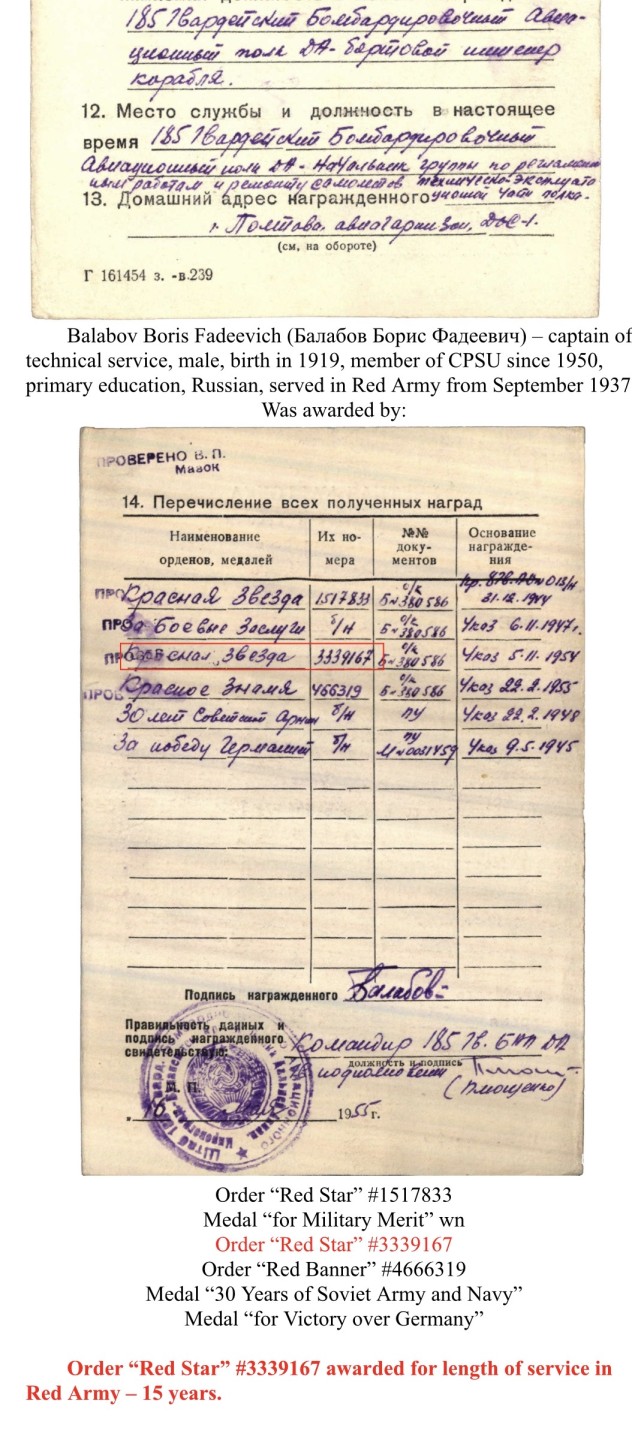 185 Гвардейский Бомбардировочный Авиа-
ционный полк ДА - бортовой инженер
корабля.
12. Место службы и должность в настоящее
время 185 Гвардейский Бомбардировочный
Авиационный полк ДА - Начальник группы по регламент
ным работам и ремонту самолетов техническо-эксплуата
13. Домашний адрес награжденного ционной части полка.
г. Полтава, авиагарнизон, ДОС-1.
(см, на обороте)
Г 161454 з. -в.239
Balabov Boris Fadeevich (Балабов Борис Фадеевич) – captain of
technical service, male, birth in 1919, member of CPSU since 1950,
primary education, Russian, served in Red Army from September 1937
Was awarded by:
ПРОВЕРЕНО В. П.
Мазок
14. Перечисление всех полученных наград
Наименование орденов, медалей Их но-мера №№ доку-ментов Основание награжде-ния
Красная Звезда 1517833 о/к Б №380586 Пр. 013/н 31.12.1944
За Боевые Заслуги б/н о/к Б №380586 Указ 6.11.1947г.
Красная Звезда 3339167 о/к Б №380586 Указ 5.11.1954
Красное Знамя 466319 о/к Б №380586 Указ 22.2.1955
30 лет Советской Армии б/н ПУ Указ 22.2.1948
За победу Германией б/н ПУ №0031459 Указ 9.5.1945
Подпись награжденного Балабов
Правильность данных и
подпись награжденного
свидетельствую:
Командир 185 Гв. БАП ДА
должность и подпись
подполковник
(Плющенко)
М. П.
„16 1955 г.
Order “Red Star” #1517833
Medal “for Military Merit” wn
Order “Red Star” #3339167
Order “Red Banner” #4666319
Medal “30 Years of Soviet Army and Navy”
Medal “for Victory over Germany”
Order “Red Star” #3339167 awarded for length of service in
Red Army – 15 years.